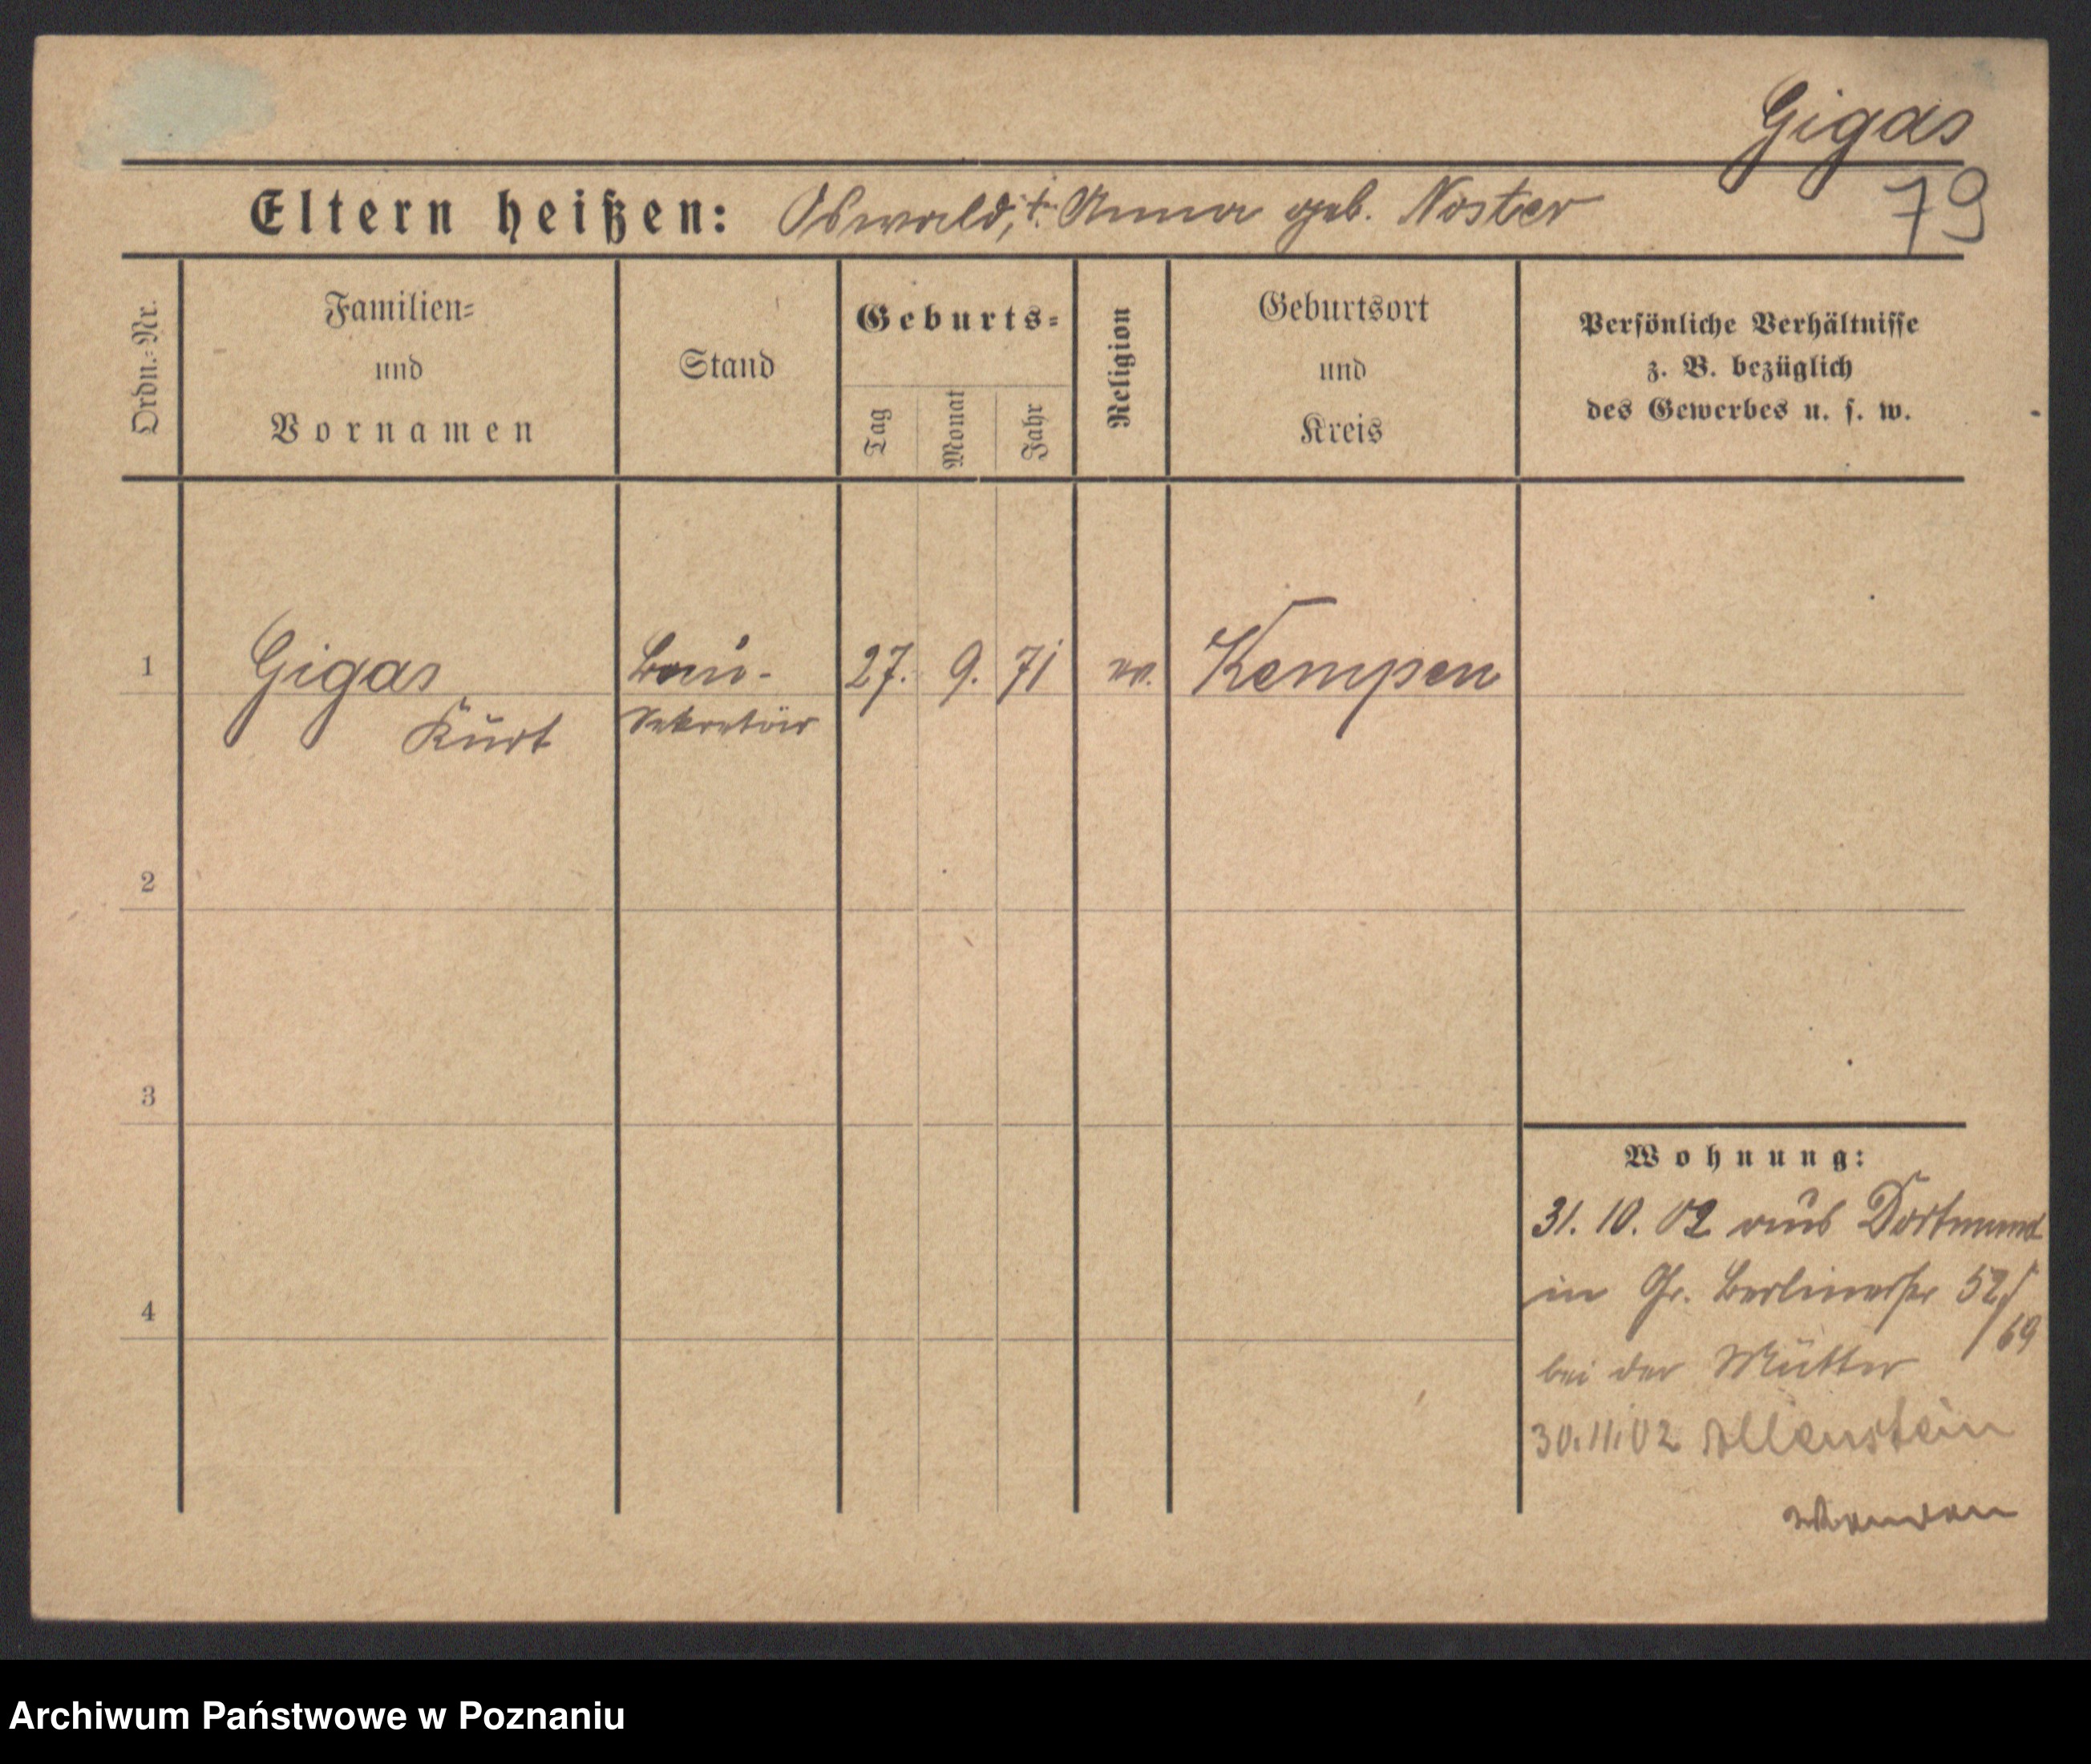 Gigas
79
Eltern heißen: Oswald, †. Anna geb. Noster
Ordn.-Nr.
Familien-
und
Vornamen
Stand
Geburts-
Tag
Monat
Jahr
Religion
Geburtsort
und
Kreis
Persönliche Verhältnisse
z. B. bezüglich
des Gewerbes u. s. w.
1
Gigas
Kurt
Bau-
Sekretär
27. 9. 71
ev.
Kempen
2
3
4
Wohnung:
31. 10. 02 aus Dortmund
in Gr. Berlinerstr 52/
69
bei der Mutter
30.11.02 Allenstein
Archiwum Państwowe w Poznaniu